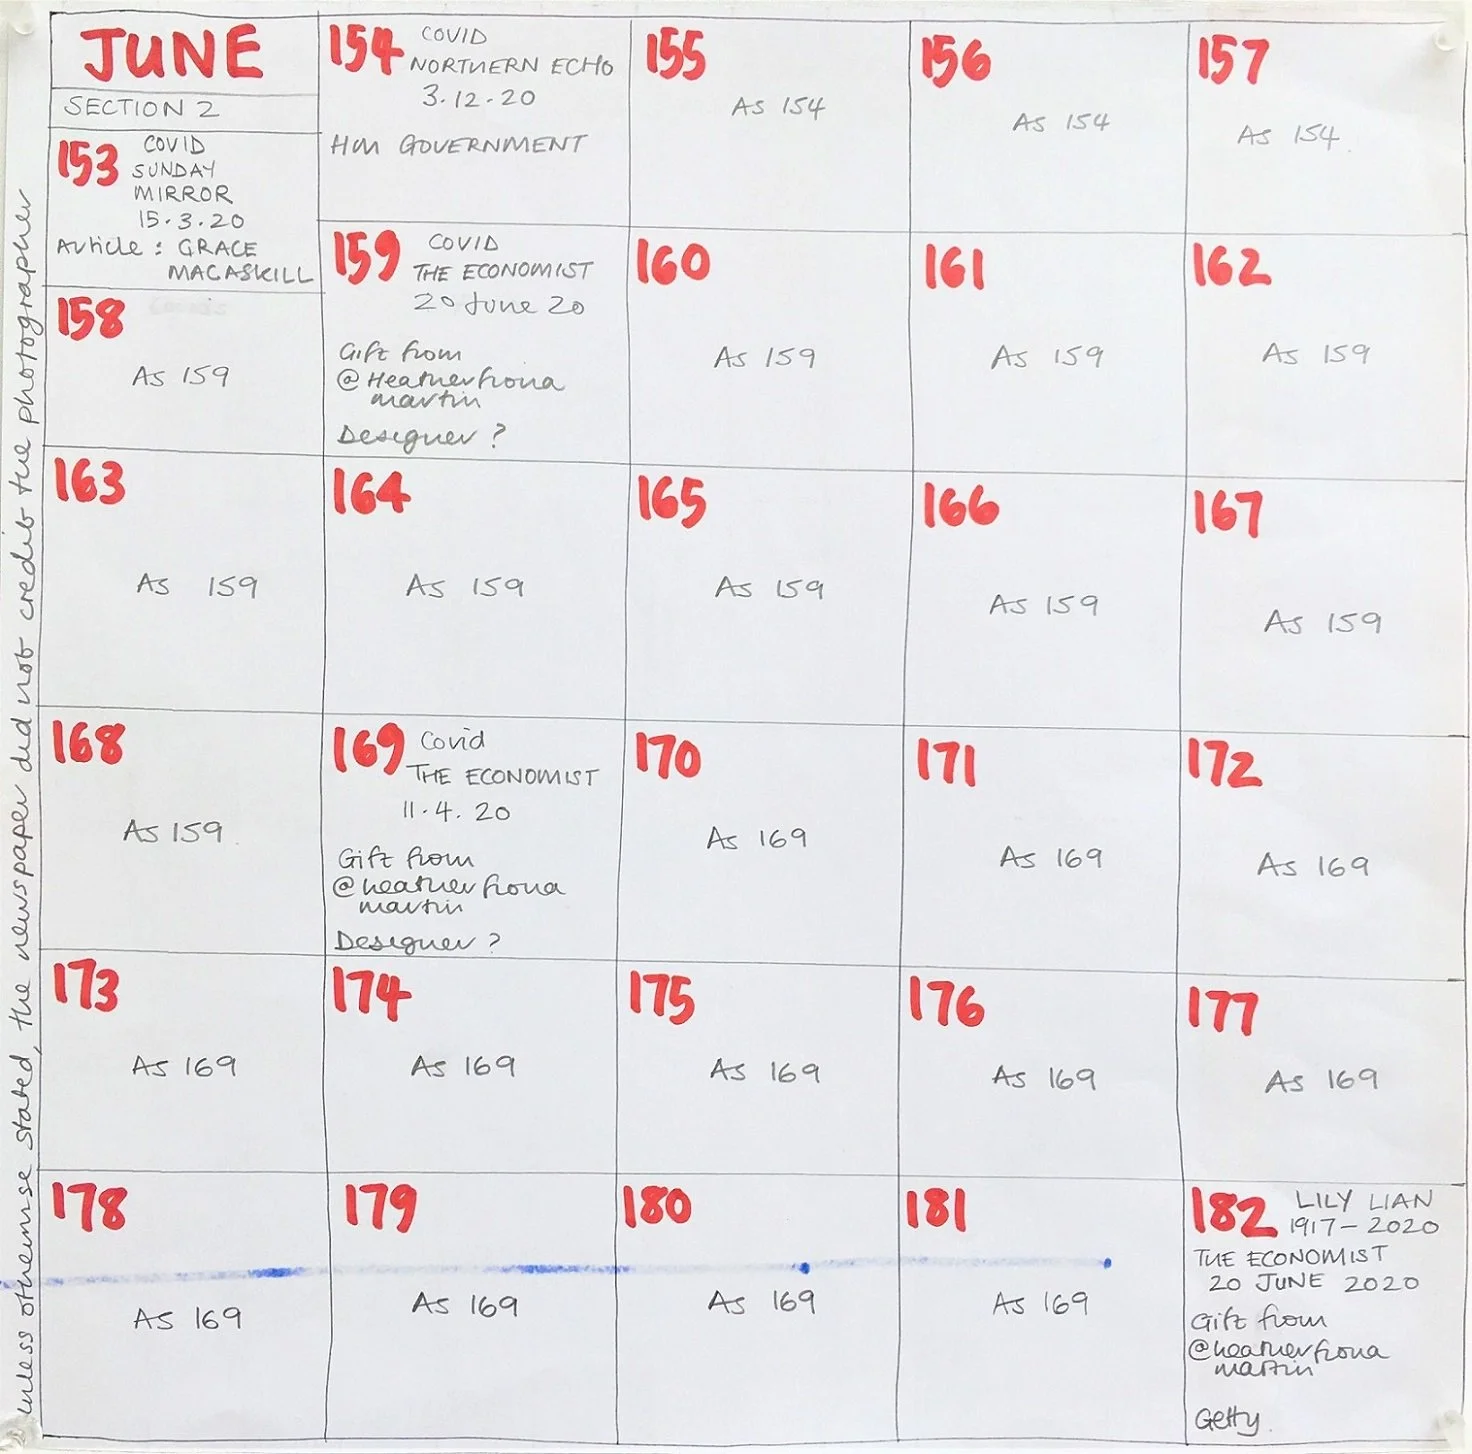 JUNE
SECTION 2
153 COVID
SUNDAY
MIRROR
15.3.20
Article : GRACE
MACASKILL
154 COVID
NORTHERN ECHO
3.12.20
HM GOVERNMENT
155
As 154
156
As 154
157
As 154.
158
As 159
159 COVID
THE ECONOMIST
20 June 20
Gift from
@Heatherfiona
martin
Designer ?
160
As 159
161
As 159
162
As 159
163
As 159
164
As 159
165
As 159
166
As 159
167
As 159
168
As 159
169 Covid
THE ECONOMIST
11.4.20
Gift from
@heatherfiona
martin
Designer ?
170
As 169
171
As 169
172
As 169
173
As 169
174
As 169
175
As 169
176
As 169
177
As 169
178
As 169
179
As 169
180
As 169
181
As 169
182 LILY LIAN
1917-2020
THE ECONOMIST
20 JUNE 2020
Gift from
@heatherfiona
martin
Getty.
unless otherwise stated, the newspaper did not credit the photographer